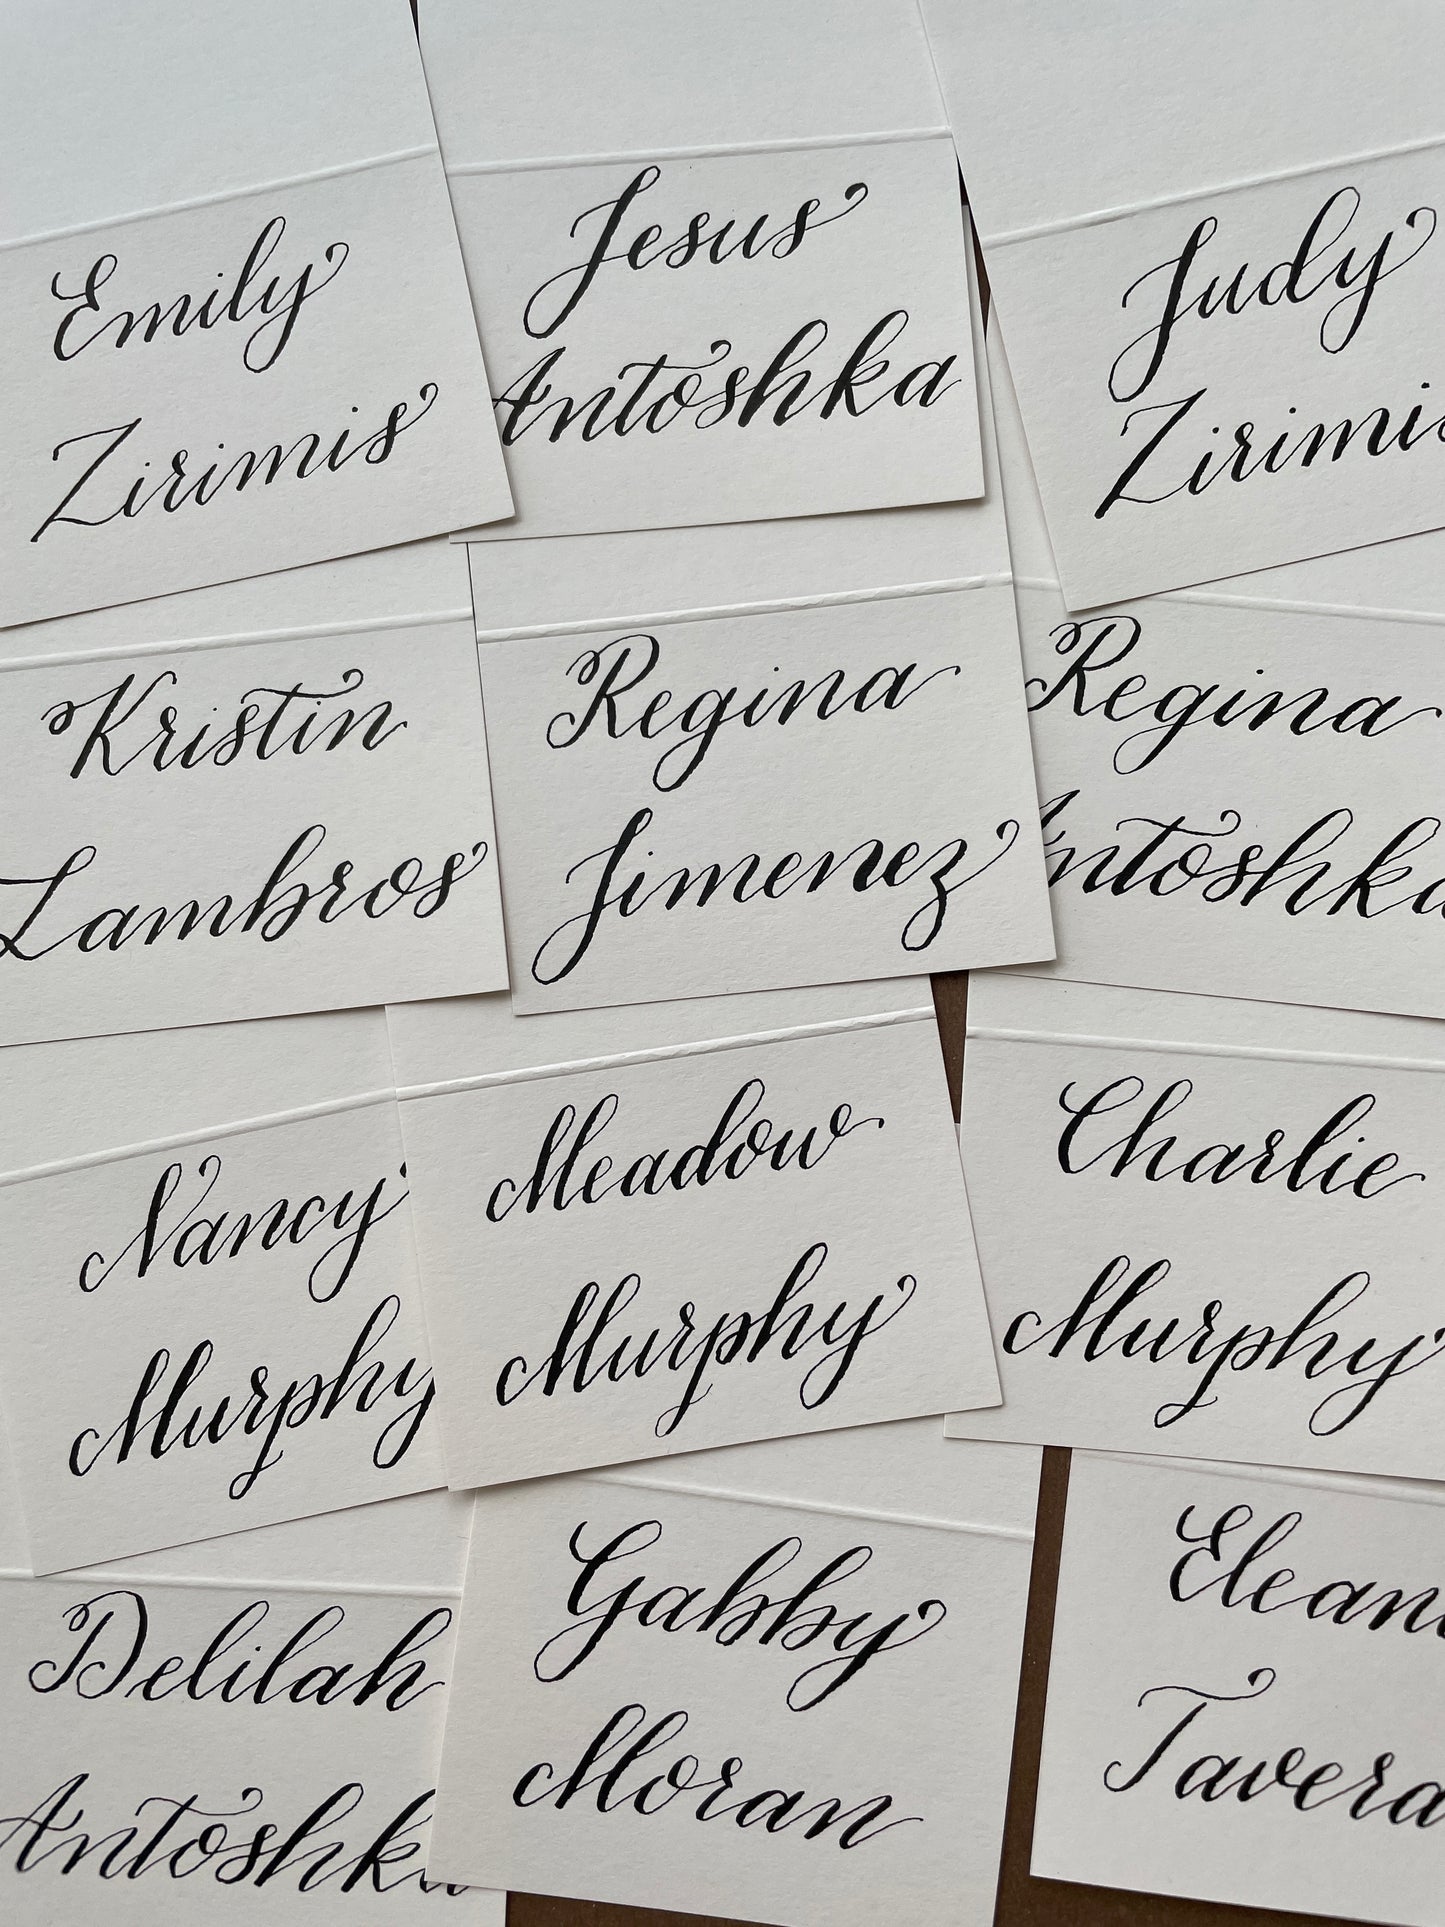 Emily
Zirimis
Jesus
Antoshka
Judy
Zirimis
Kristin
Lambros
Regina
Jimenez
Regina
Antoshka
Nancy
Murphy
Meadow
Murphy
Charlie
Murphy
Delilah
Antoshka
Gabby
Moran
Elean
Tavera